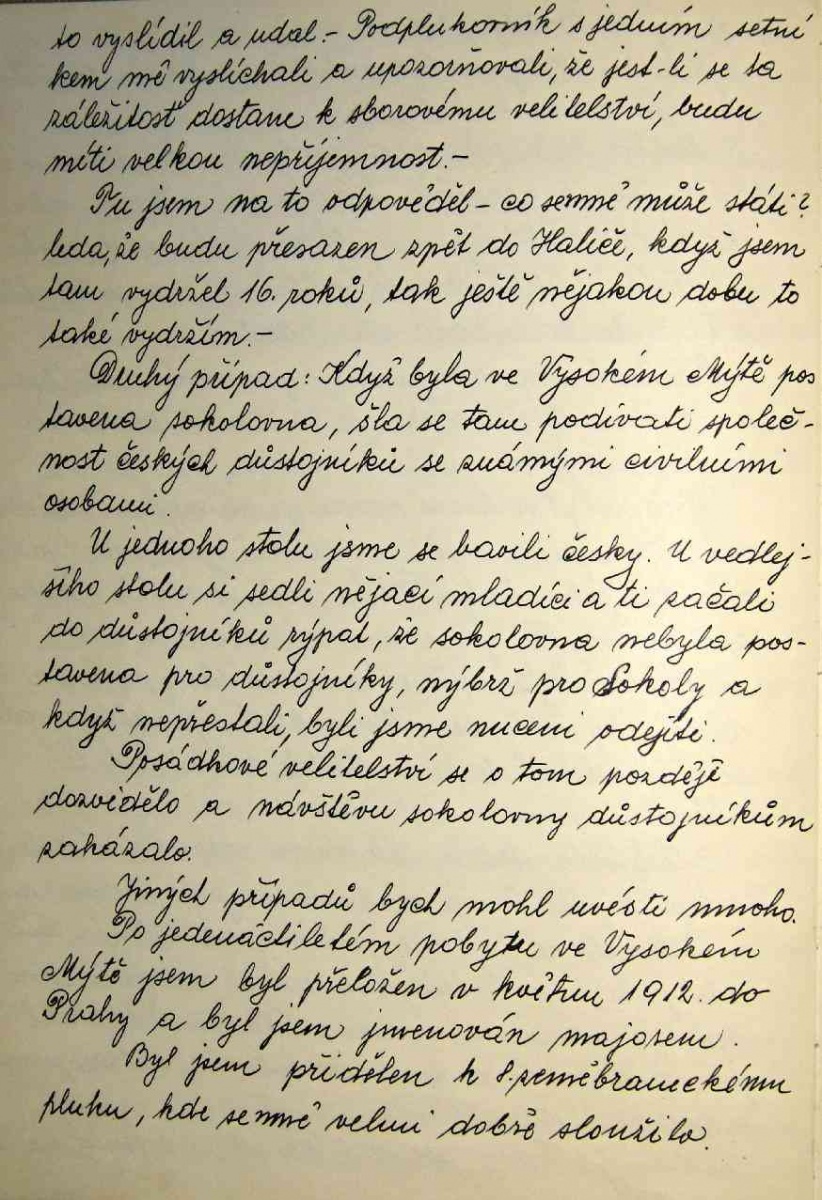 to vyslídil a udal.- Podplukovník s jedním setní
kem mě vyslíchali a upozorňovali, že jest-li se ta
záležitosť dostane k sborovému velitelství, budu
míti velkou nepříjemnost.-
Tu jsem na to odpověděl - co semně může státi?
leda, že budu přesazen zpět do Haliče, když jsem
tam vydržel 16. roků, tak ještě nějakou dobu to
také vydržím.-
Druhý případ: Když byla ve Vysokém Mýtě pos
tavena sokolovna, šla se tam podívati společ-
nost českých důstojníků se známými civilními
osobami.
U jednoho stolu jsme se bavili česky. U vedlej-
šího stolu si sedli nějací mladíci a ti začali
do důstojníků rýpat, že sokolovna nebyla pos-
tavena pro důstojníky, nýbrž pro Sokoly a
když nepřestali, byli jsme nuceni odejíti.
Posádkové velitelství se o tom později
dozvědělo a návštěvu sokolovny důstojníkům
zakázalo.
Jiných případů bych mohl uvésti mnoho.
Po jedenáctiletém pobytu ve Vysokém
Mýtě jsem byl přeložen v květnu 1912. do
Prahy a byl jsem jmenován majorem.
Byl jsem přidělen k 8. zeměbraneckému
pluku, kde semně velmi dobře sloužilo.